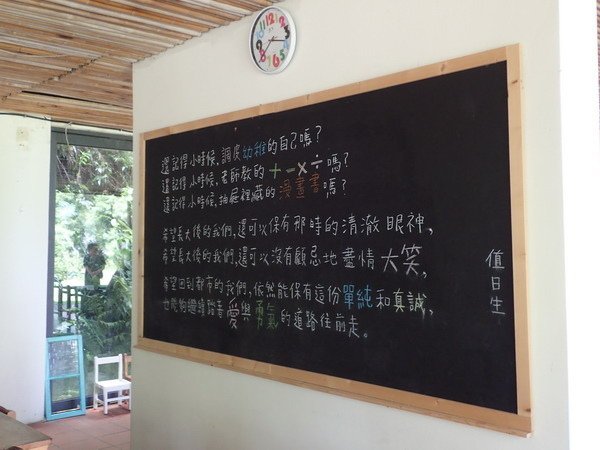 還記得小時候、調皮幼稚的自己嗎？
還記得小時候、老師教的＋－×÷嗎？
還記得小時候、抽屜裡藏的漫畫書嗎？
希望長大後的我們，還可以保有那時的清澈眼神，
希望長大後的我們，還可以沒有顧忌地盡情大笑，
希望回到都市的我們，依然能保有這份單純和真誠，
也能夠繼續踏著愛與勇氣的道路往前走。
值日生